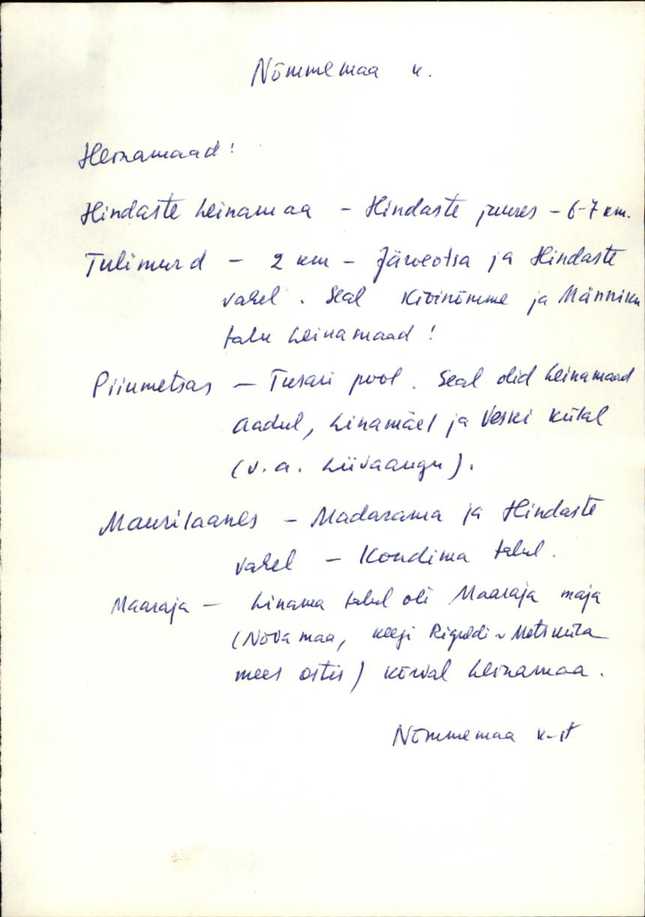 Nõmmemaa k.
Heinamaad!
Hindaste heinamaa - Hindaste juures - 6-7 km.
Tulimurd - 2 km - Järveotsa ja Hindaste
vahel. Seal Kivinõmme ja Männiku
talu heinamaad!
Piiumetsas - Tusari pool. Seal olid heinamaad
Aadul, Linamäel ja Veski külal
(v.a. Liivaaugu).
Maurilaanes - Madarama ja Hindaste
vahel - Kondima talul.
Maaraja - Linama talul oli Maaraja maja
(Nõva maa, keegi Metsküla
mees ostis) kõrval heinamaa.
Nõmmemaa k-st